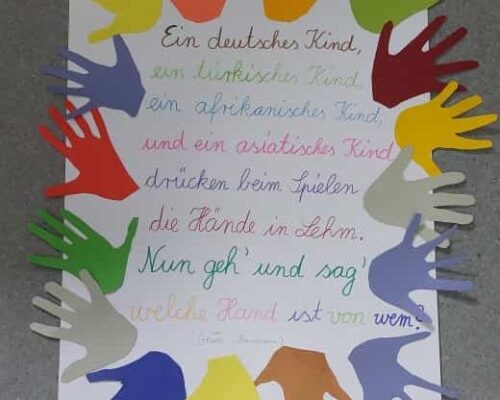 Ein deutsches Kind,
ein türkisches Kind,
ein afrikanisches Kind,
und ein asiatisches Kind
drücken beim Spielen
die Hände in Lehm.
Nun geh' und sag'
welche Hand ist von wem?